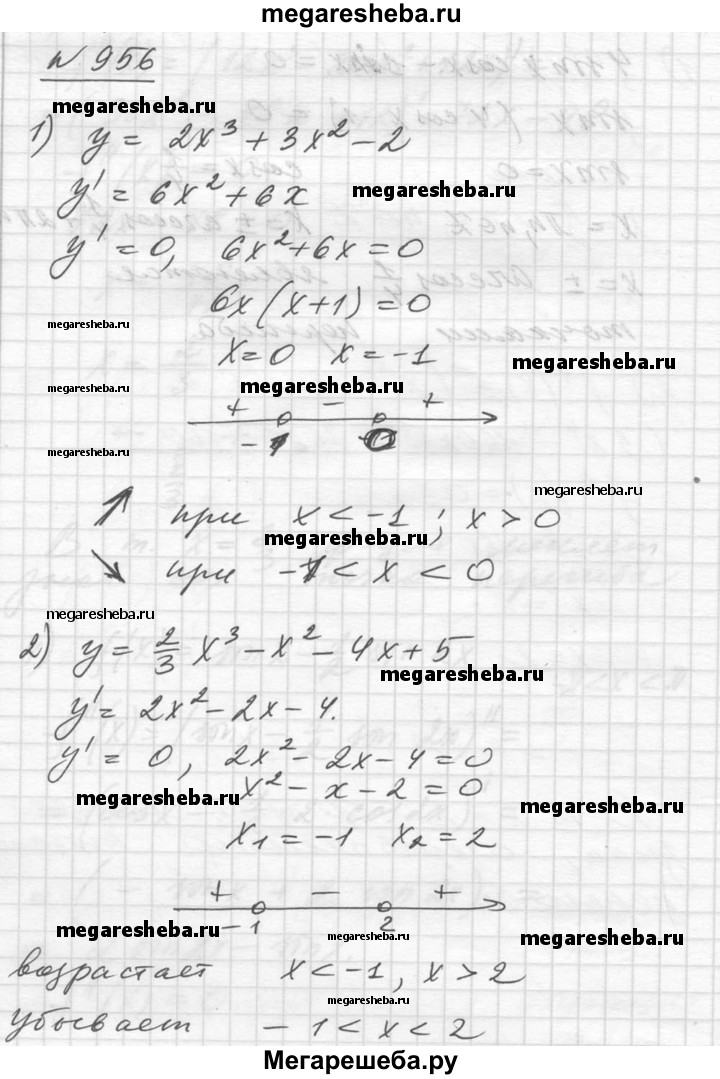 megaresheba.ru
№ 956
megaresheba.ru
1) y = 2x³ + 3x² − 2
y' = 6x² + 6x
megaresheba.ru
y' = 0, 6x² + 6x = 0
6x(x+1) = 0
megaresheba.ru
x = 0 x = −1
megaresheba.ru
megaresheba.ru
+ − +
−1 0
megaresheba.ru
megaresheba.ru
↑ при x < −1 ; x > 0
megaresheba.ru
↘ при −1 < x < 0
megaresheba.ru
2) y = 2/3 x³ − x² − 4x + 5
megaresheba.ru
y' = 2x² − 2x − 4.
y' = 0, 2x² − 2x − 4 = 0
megaresheba.ru x² − x − 2 = 0
megaresheba.ru
x₁ = −1 x₂ = 2
+ − +
−1 2
megaresheba.ru
megaresheba.ru
megaresheba.ru
возрастает x < −1, x > 2
megaresheba.ru
убывает −1 < x < 2
Мегарешеба.ру